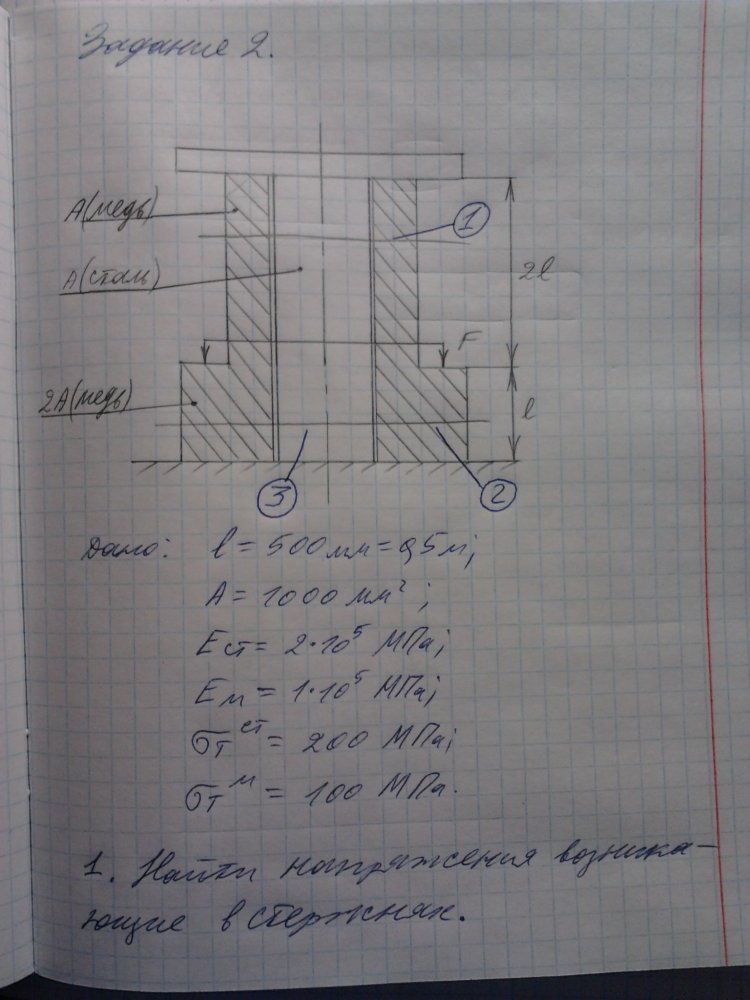 Задание 2.
А(медь)
1
А(сталь)
2l
F
2А(медь)
l
3
2
Дано: l = 500 мм = 0,5 м;
А = 1000 мм²;
Eст = 2·10⁵ МПа;
Eм = 1·10⁵ МПа;
σт ст = 200 МПа;
σт м = 100 МПа.
1. Найти напряжения возника-
ющие в стержнях.